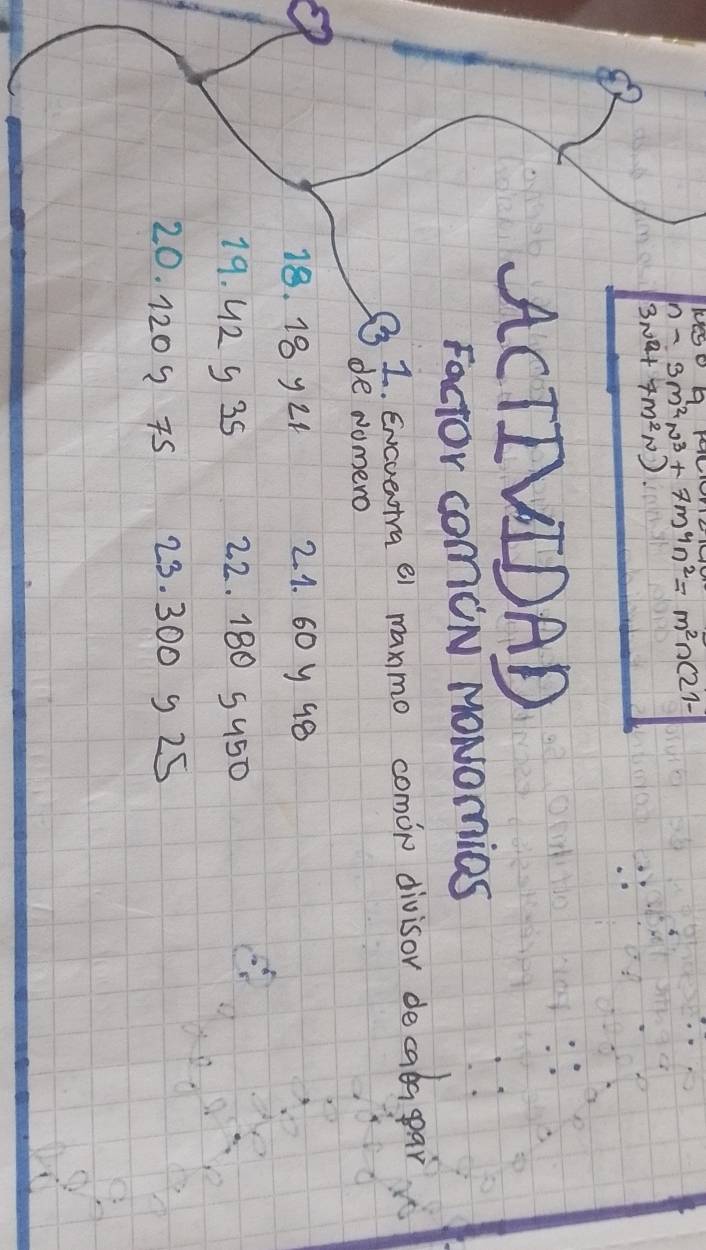 n - 3m²N³ + 7m⁴n² = m²n(21-
3N²+ 7m²N).
ACTIVIDAD
Factor comÚN MONOmios
1. Encuentra el maximo comÚN divisor de cada par
de Numero
18. 18 y 21 21. 60 y 48
19. 42 y 35 22. 180 y 450
20. 120 y 75 23. 300 y 25